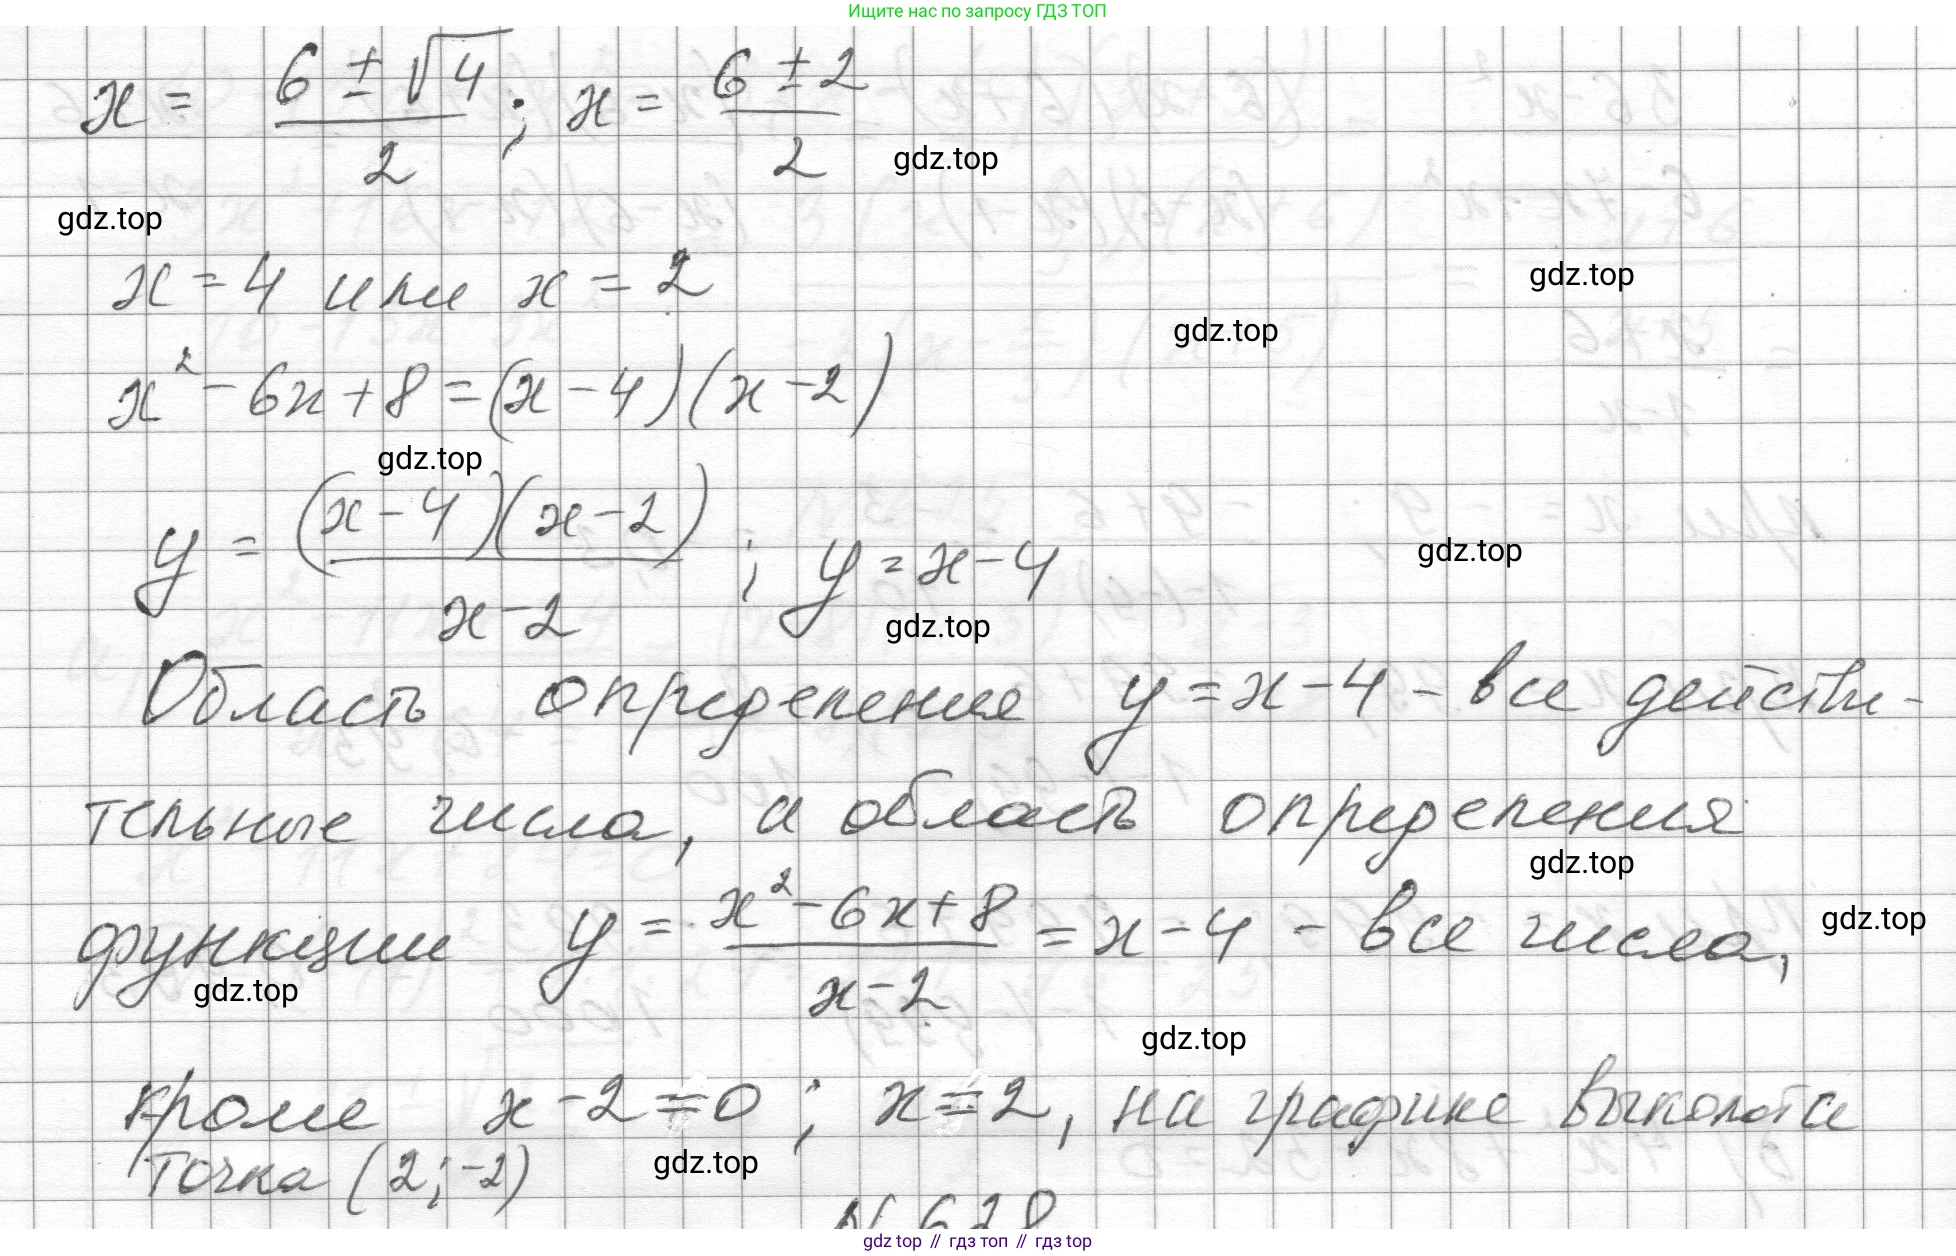 Ищите нас по запросу ГДЗ ТОП
x = (6 ± √4)/2 ; x = (6 ± 2)/2
gdz.top
gdz.top
x = 4 или x = 2
gdz.top
gdz.top
x² - 6x + 8 = (x - 4)(x - 2)
gdz.top
y = ((x - 4)(x - 2))/(x - 2) ; y = x - 4
gdz.top
gdz.top
Область определения y = x - 4 - все действи-
тельные числа, а область определения
gdz.top
функции y = (x² - 6x + 8)/(x - 2) = x - 4 - все числа,
gdz.top
gdz.top
gdz.top
кроме x - 2 = 0 ; x = 2, на графике выколота
точка (2; -2)
gdz.top
N 628
gdz top // гдз топ // гдз.top